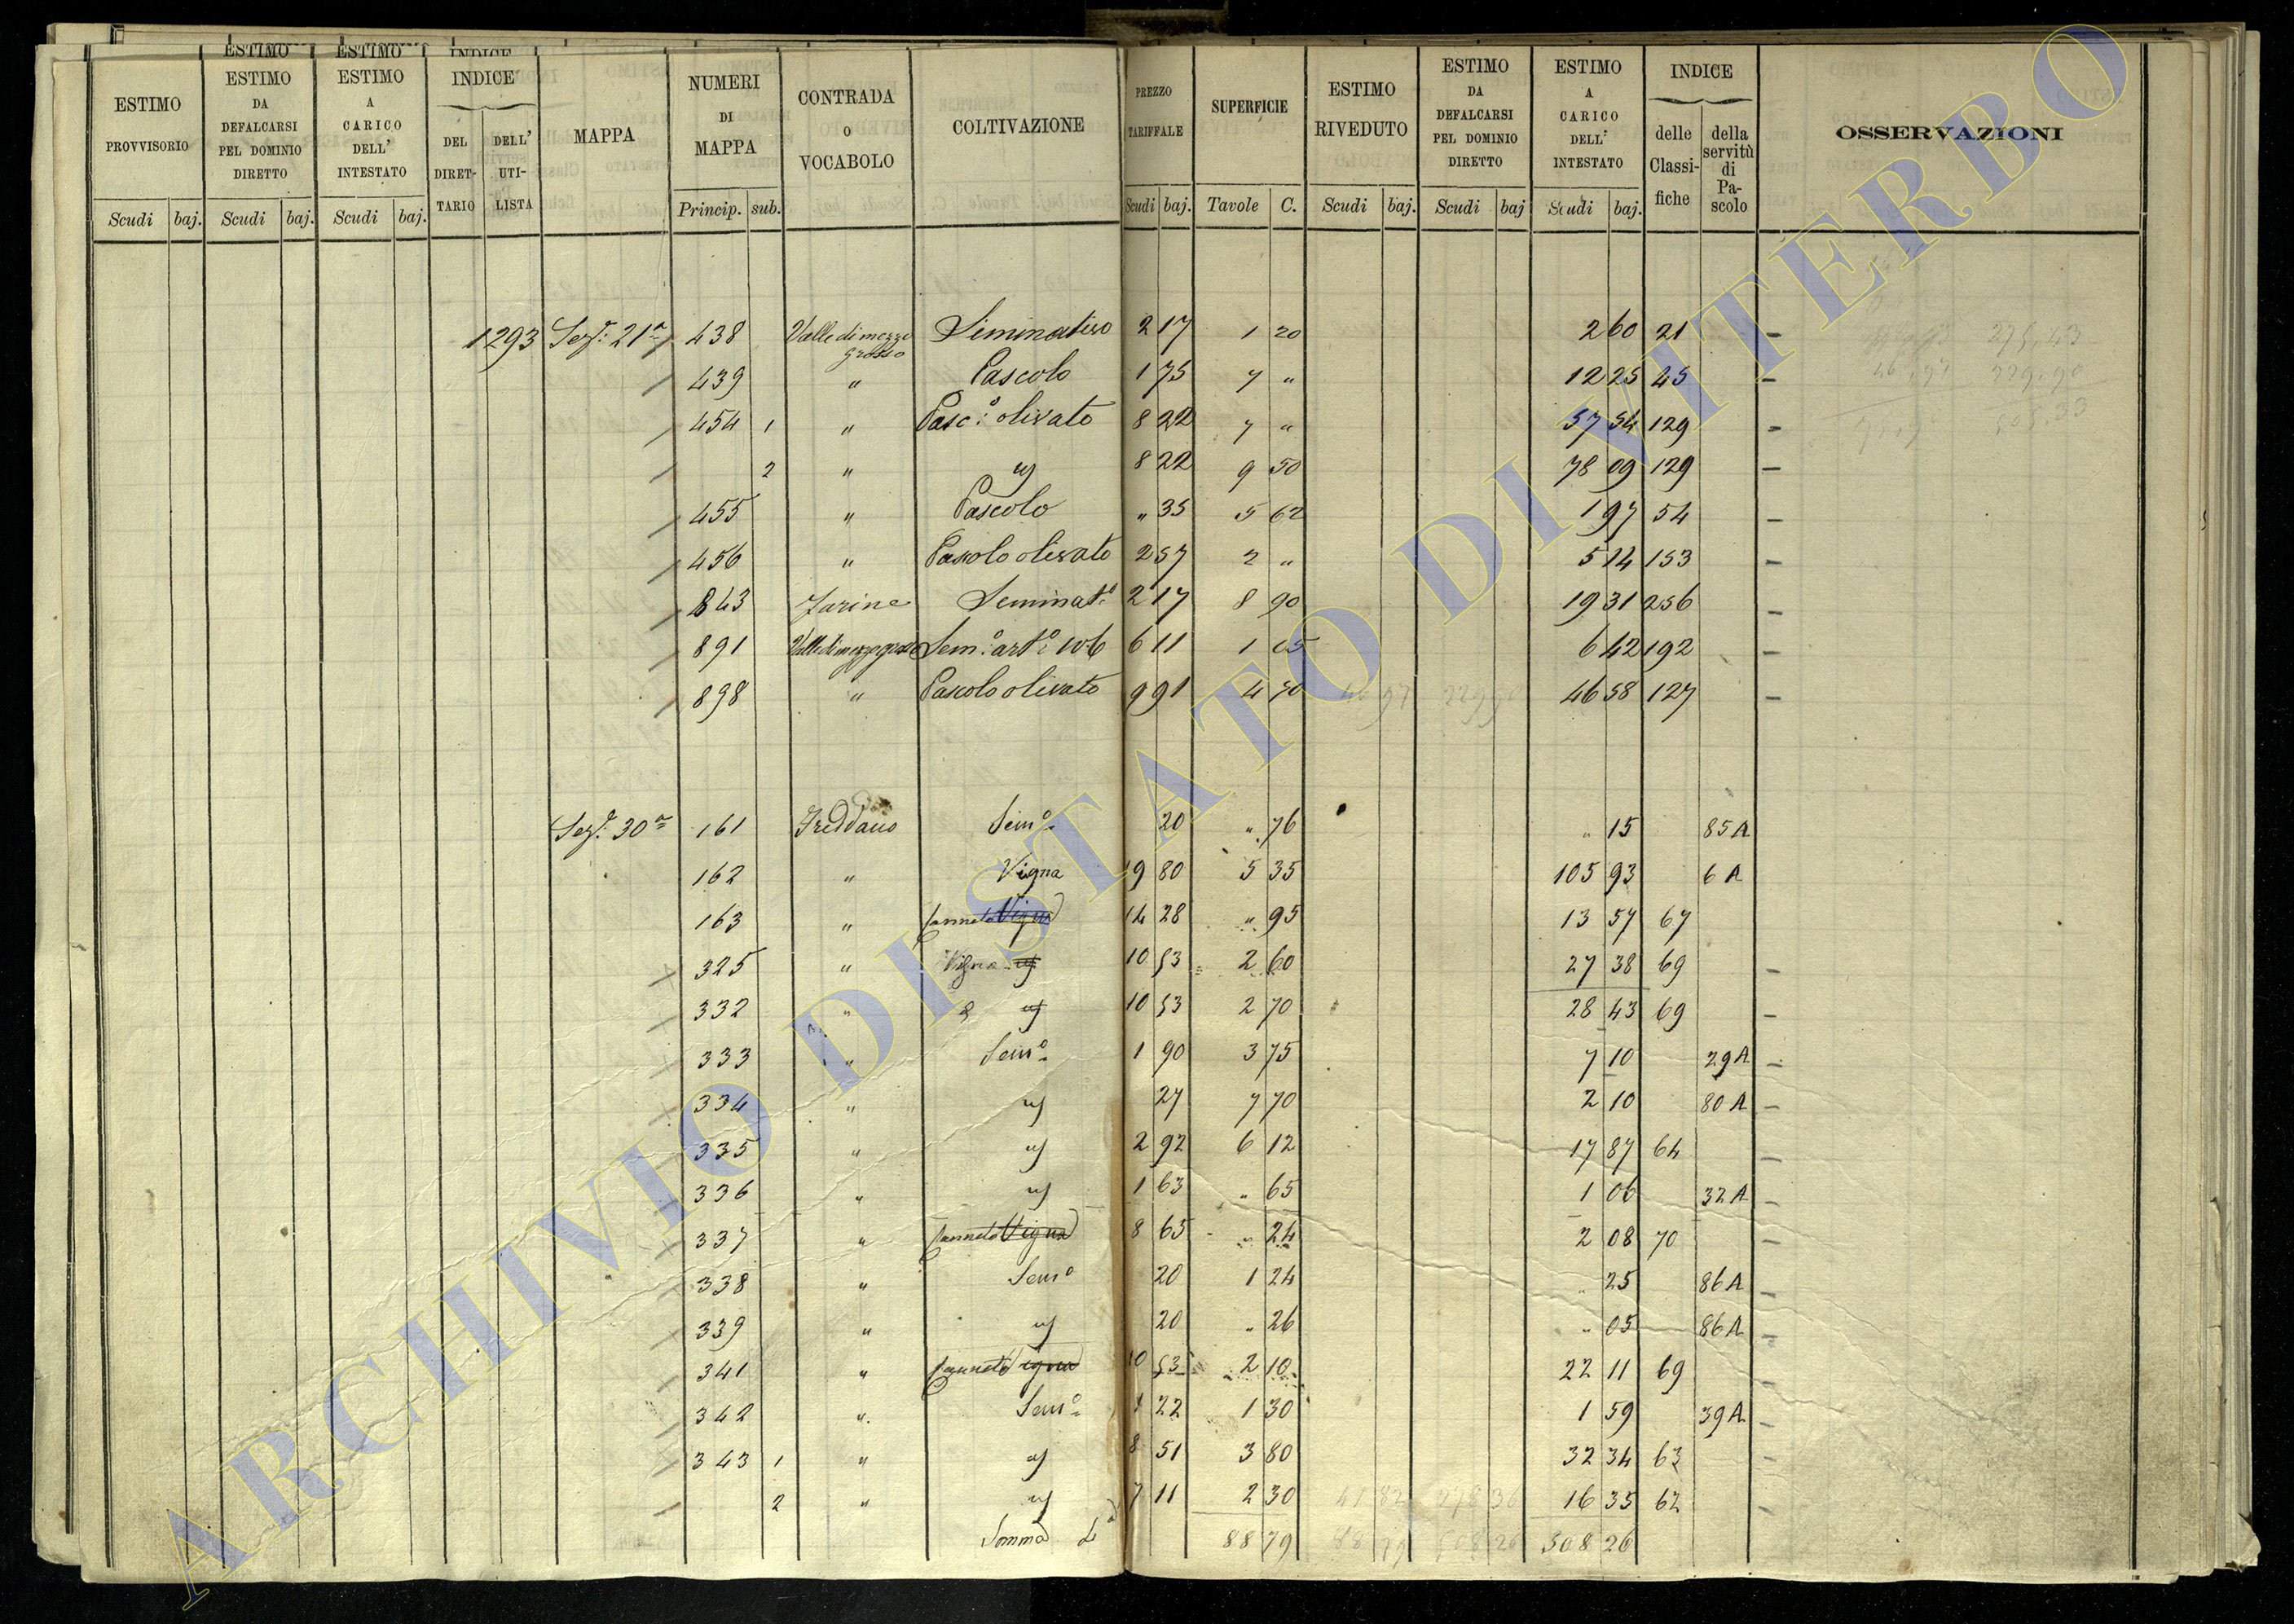 ESTIMO ESTIMO INDICE
ESTIMO PROVVISORIO
ESTIMO DA DEFALCARSI PEL DOMINIO DIRETTO
ESTIMO A CARICO DELL' INTESTATO
INDICE
DEL DIRET-TARIO
DELL' UTI-LISTA
MAPPA
NUMERI DI MAPPA
CONTRADA O VOCABOLO
COLTIVAZIONE
PREZZO TARIFFALE
SUPERFICIE
ESTIMO RIVEDUTO
ESTIMO DA DEFALCARSI PEL DOMINIO DIRETTO
ESTIMO A CARICO DELL' INTESTATO
INDICE
delle Classi-fiche
della servitù di Pa-scolo
OSSERVAZIONI
Scudi baj. Scudi baj. Scudi baj. Princip. sub. Scudi baj. Tavole C. Scudi baj. Scudi baj Scudi baj.
1293 Sez.e 21a 438 Valle di mezzo grosso Seminativo 2 17 1 20 2 60 21 –
439 " Pascolo 1 75 7 " 12 25 45 –
454 1 " Pasc.o olivato 8 22 7 " 57 54 129 –
2 " " 8 22 9 50 78 09 129 –
455 " Pascolo " 35 5 62 1 97 54 –
456 " Pascolo olivato 2 57 2 " 5 14 153 –
843 Farine Seminat.o 2 17 8 90 19 31 256 –
891 Valle di mezzo grosso Sem.o art.o 6 11 1 05 6 42 192 –
898 " Pascolo olivato 9 91 4 70 46 97 229 90 46 58 127 –
Sez.e 30a 161 Freddano Sem.o 20 " 76 " 15 85 A
162 " Vigna 19 80 5 35 105 93 6 A
163 " Canneto Vigna 14 28 " 95 13 57 67
325 " Vigna 10 53 2 60 27 38 69 –
332 " " 10 53 2 70 28 43 69 –
333 " Sem.o 1 90 3 75 7 10 29 A –
334 " " 27 7 70 2 10 80 A –
335 " " 2 92 6 12 17 87 64 –
336 " " 1 63 " 65 1 06 32 A –
337 " Canneto Vigna 8 65 " 24 2 08 70 –
338 " Sem.o 20 1 24 " 25 86 A –
339 " " 20 " 26 " 05 86 A –
341 " Canneto Vigna 10 53 2 10 22 11 69 –
342 " Sem.o 1 22 1 30 1 59 39 A –
343 1 " " 8 51 3 80 32 34 63 –
2 " " 7 11 2 30 41 82 278 36 16 35 62 –
Somma 88 79 88 79 508 26 508 26
ARCHIVIO DI STATO DI VITERBO